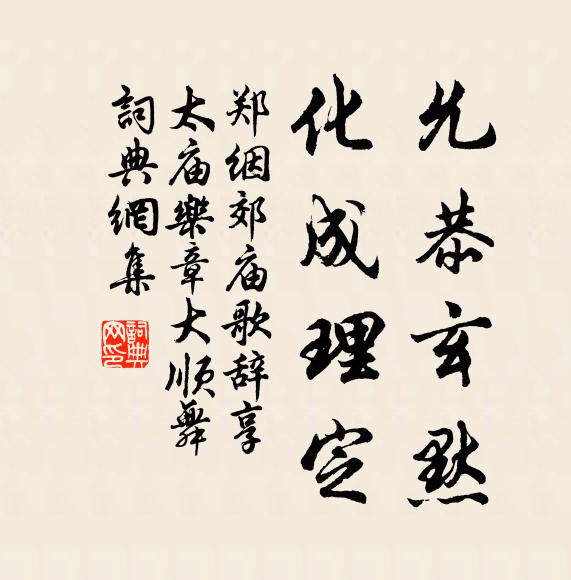 允恭玄默
化成理定
郑絪郊庙歌辞享
太庙樂章大順舞
詞典網集
詞典网印